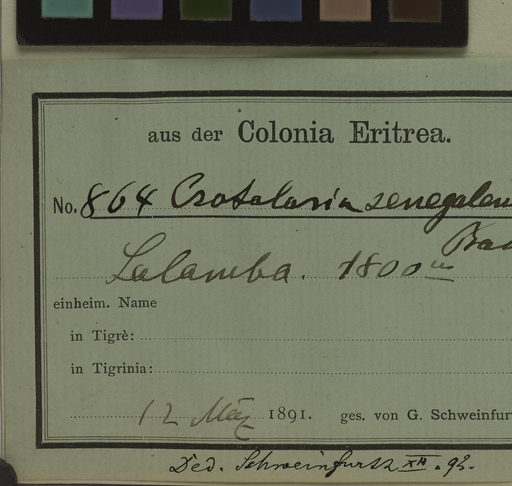 aus der Colonia Eritrea.
No. 864 Crotalaria senegalen
Lalamba. 1800 m
einheim. Name
in Tigrè:
in Tigrinia:
12 März 1891. ges. von G. Schweinfur
Ded. Schweinfurth XII. 92.